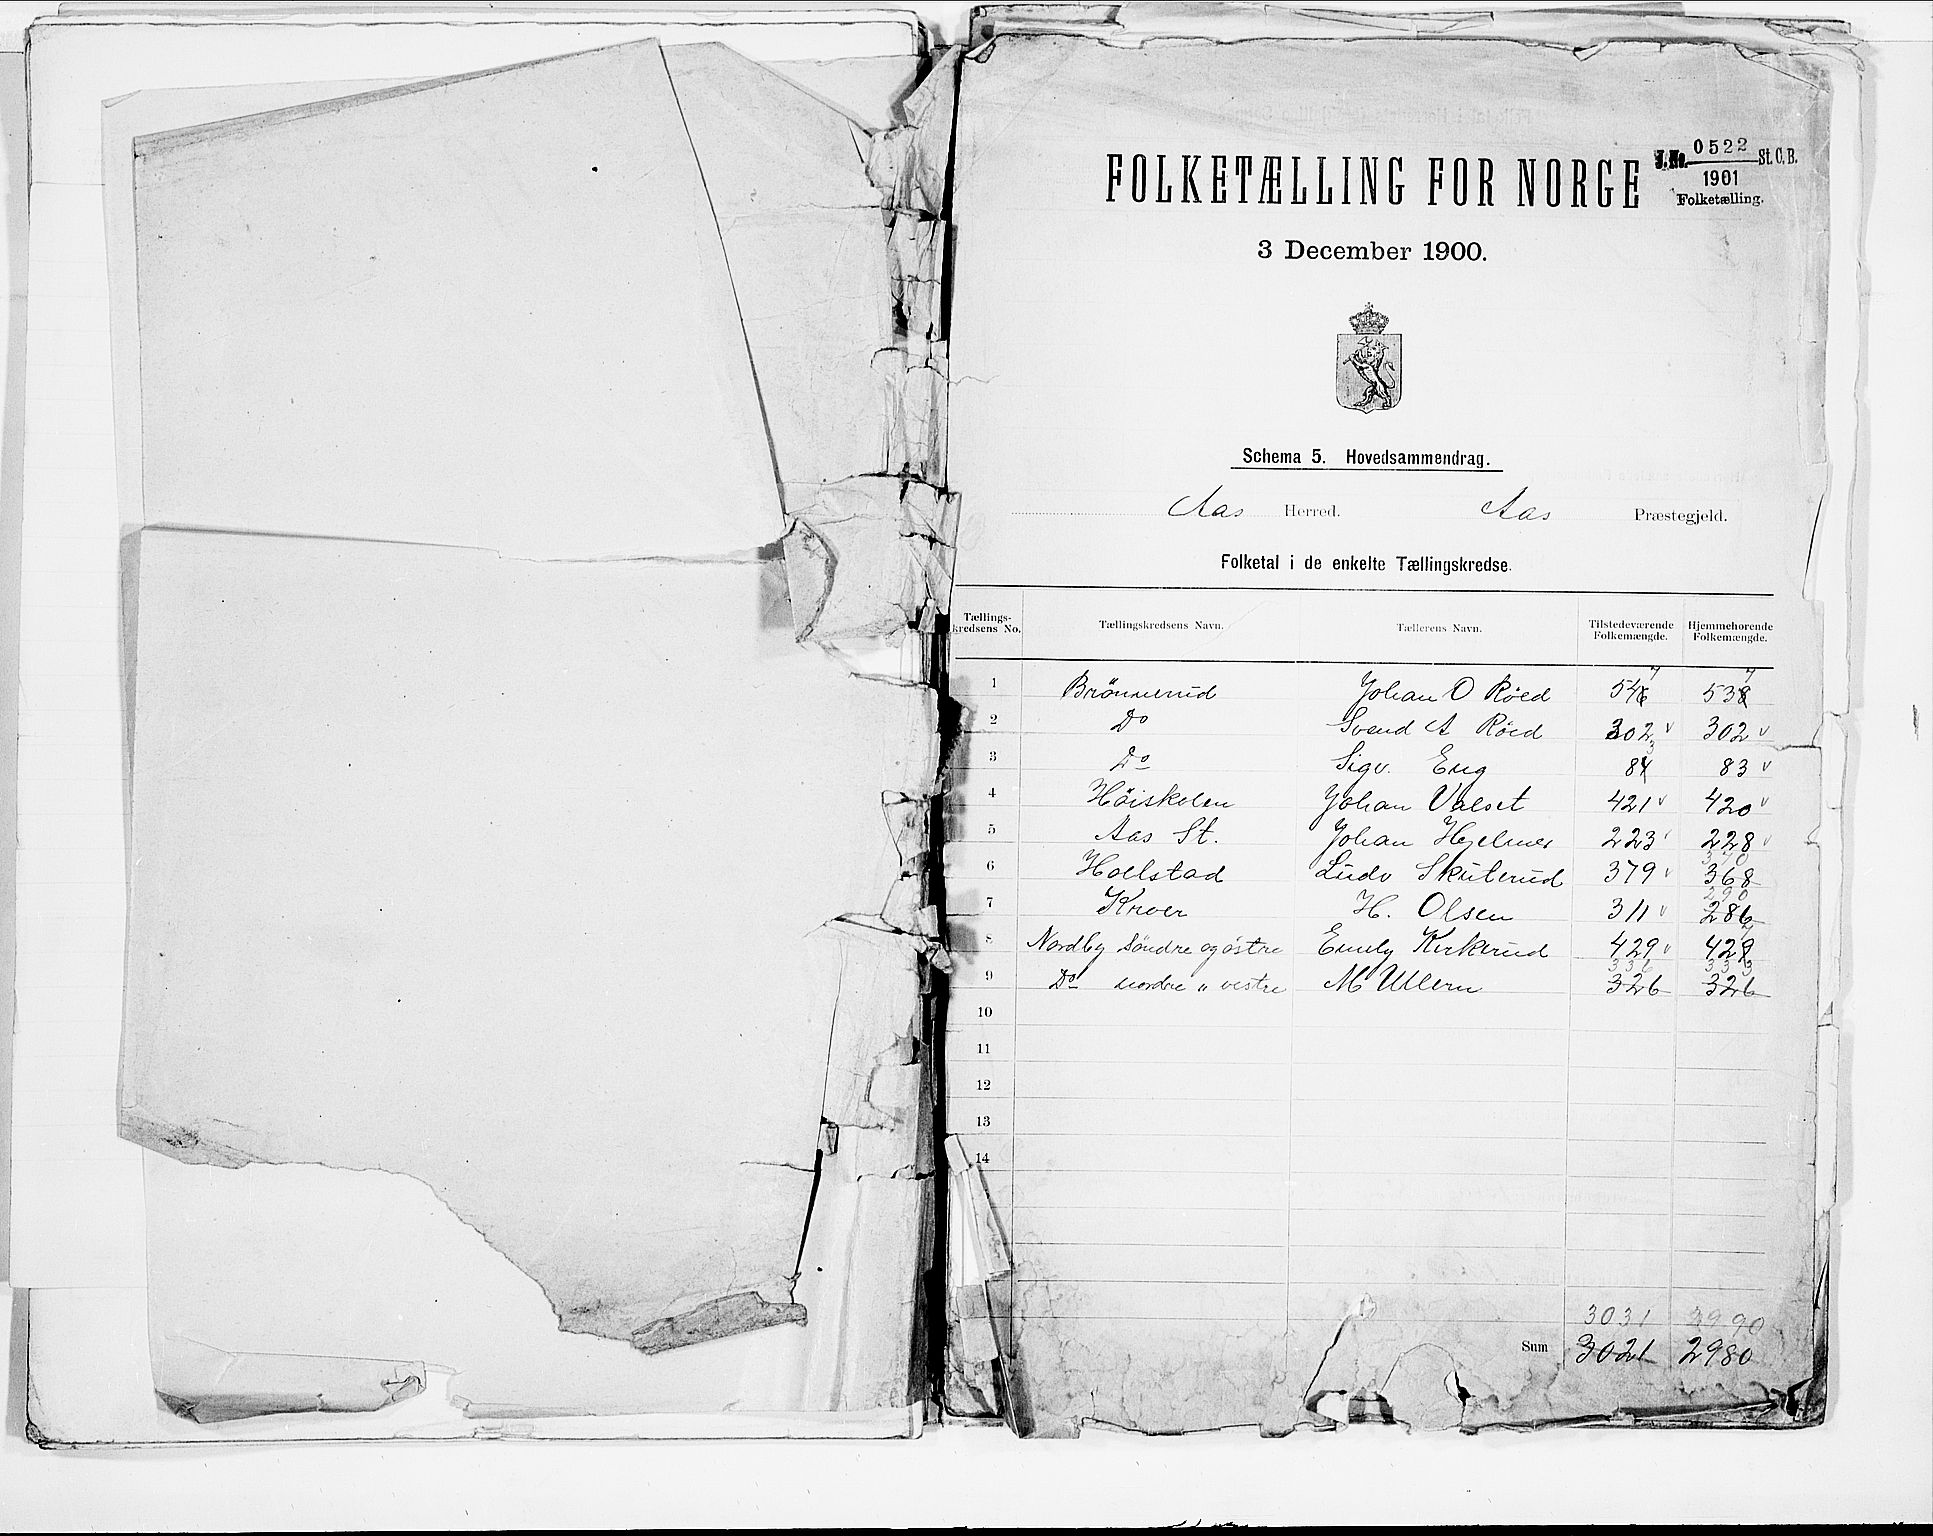 FOLKETÆLLING FOR NORGE
J.No. 0522 St. C. B.
1901
Folketælling.
3 December 1900.
Schema 5. Hovedsammendrag.
Aas Herred. Aas Præstegjeld.
Folketal i de enkelte Tællingskredse.
Tællings-kredsens No. Tællingskredsens Navn. Tællerens Navn. Tilstedeværende Folkemængde. Hjemmehørende Folkemængde.
1 Brønnerud Johan O Röed 547 537
2 Do Svend A Röed 302 v 302 v
3 Do Sigv. Eng 83 83 v
4 Høiskolen Johan Valset 421 v 420 v
5 Aas St. Johan Hjelmes 223 v 228 v
370
6 Holstad Ludv Skuterud 379 v 368
290
7 Kroer H. Olsen 311 v 286
8 Nordby søndre og østre Emily Kirkerud 429 v 427
336 333
9 Do nordre " vestre M Ullern 326 326
10
11
12
13
14
3031 2990
Sum 3021 2980